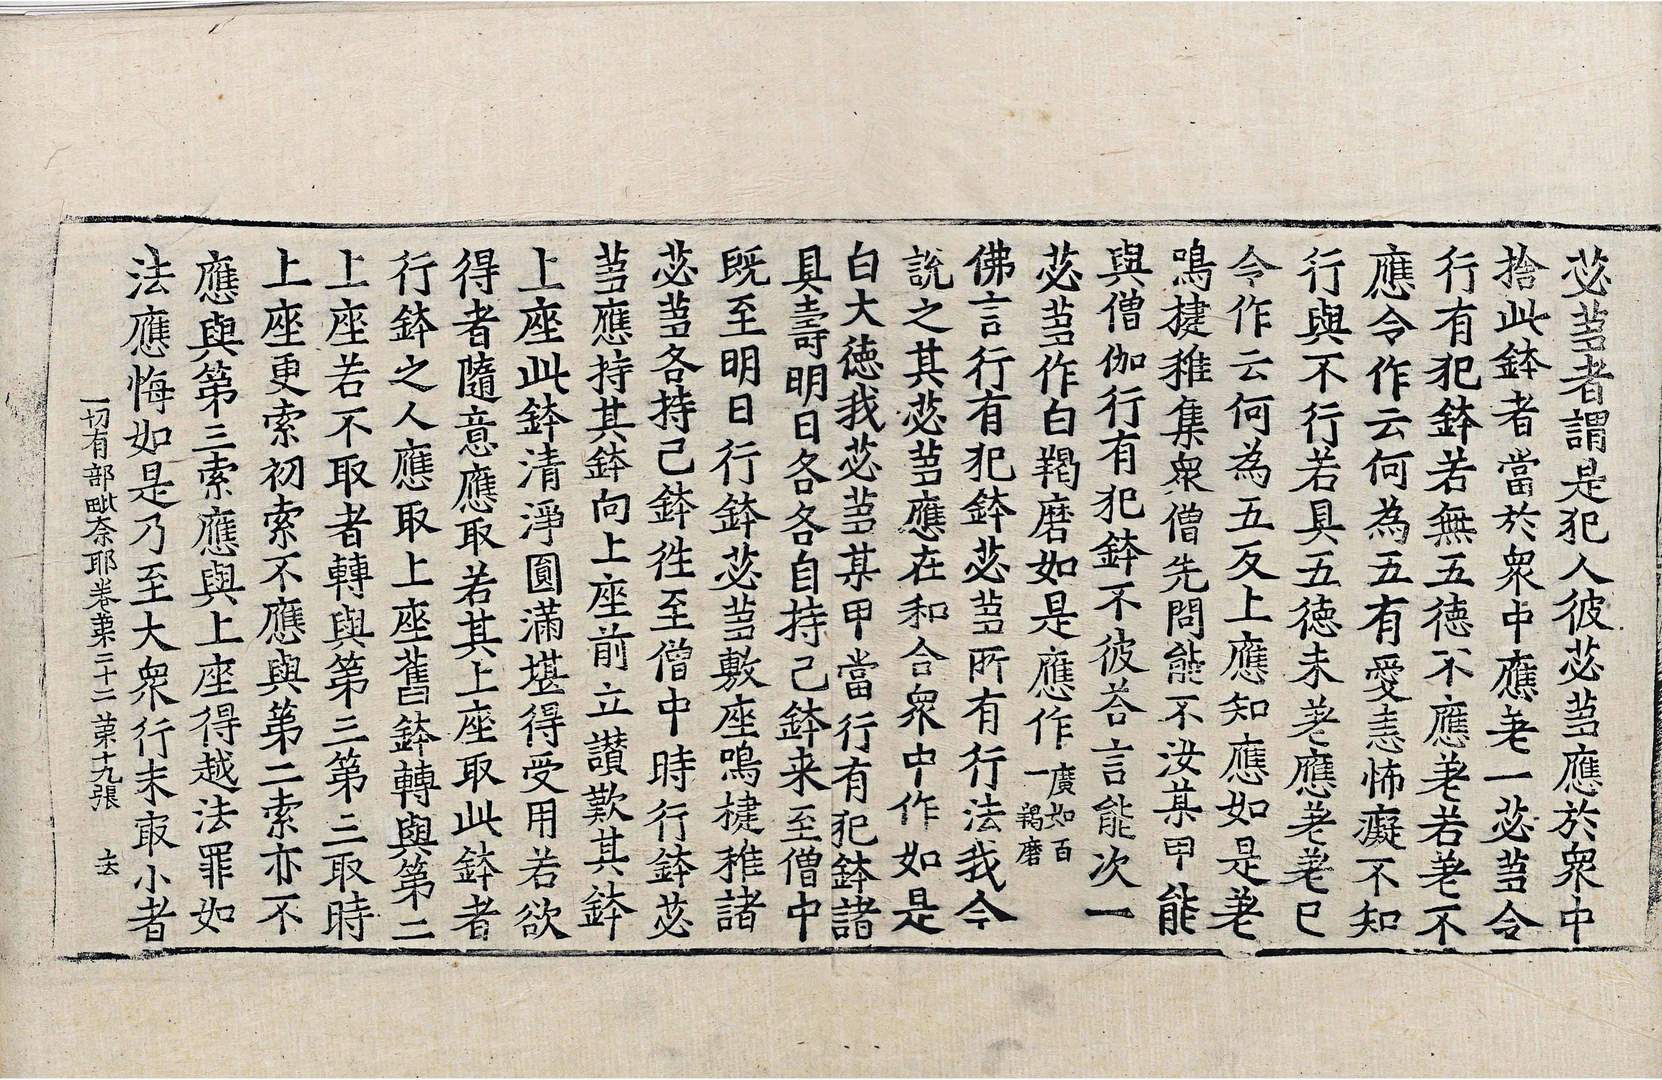 苾芻者謂是犯人彼苾芻應於衆中
捨此鉢者當於衆中應差一苾芻令
行有犯鉢若無五德不應差若差不
應令作云何為五有愛恚怖癡不知
行與不行若具五德未差應差差已
令作云何為五反上應知應如是差
鳴揵稚集衆僧先問能不汝某甲能
與僧伽行有犯鉢不彼荅言能次一
苾芻作白羯磨如是應作廣如百一羯磨
佛言行有犯鉢苾芻所有行法我今
說之其苾芻應在和合衆中作如是
白大德我苾芻某甲當行有犯鉢諸
具壽明日各各自持己鉢来至僧中
既至明日行鉢苾芻敷座鳴揵稚諸
苾芻各持己鉢徃至僧中時行鉢苾
芻應持其鉢向上座前立讃歎其鉢
上座此鉢清淨圓滿堪得受用若欲
得者隨意應取若其上座取此鉢者
行鉢之人應取上座舊鉢轉與第二
上座若不取者轉與第三第三取時
上座更索初索不應與第二索亦不
應與第三索應與上座得越法罪如
法應悔如是乃至大衆行末冣小者
一切有部毗奈耶卷第二十二 第十九張 去